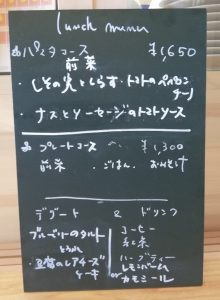 lunch menu
パスタコース ¥1,650
前菜
・しその実としらす・トマトのペペロン
チーノ
・ナスとソーセージのトマトソース
プレートコース ¥1,300
前菜 ごはん
デザート & ドリンク
ブルーベリーのタルト
豆腐のレアチーズ
ケーキ
コーヒー
紅茶
ハーブティー
レモンバーム
or カモミール